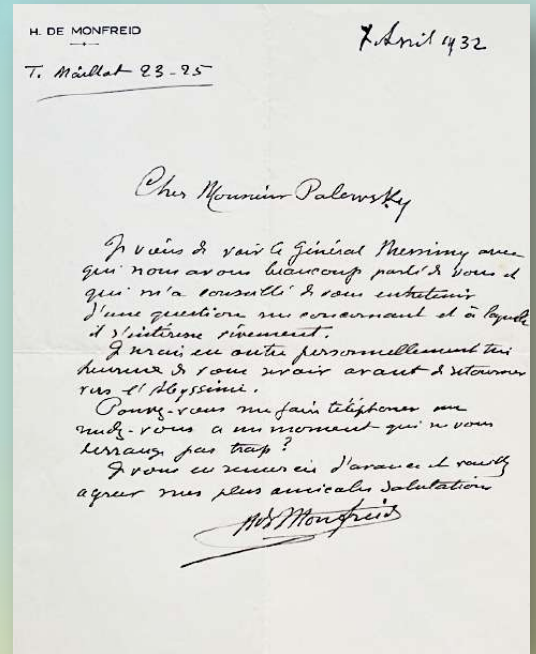 H. DE MONFREID
7 Avril 1932
T. Maillot 23-25
Cher Monsieur Palewsky
Je viens de voir le Général Messimy avec
qui nous avons beaucoup parlé de vous et
qui m'a conseillé de vous entretenir
d'une question me concernant et à laquelle
il s'intéresse vivement.
Je serais en outre personnellement très
heureux de vous revoir avant de retourner
vers l'Abyssinie.
Pouvez-vous me faire téléphoner un
rendez-vous a un moment qui ne vous
derrange pas trop ?
Je vous en remercie d'avance et veuillez
agréer mes plus amicales salutations
H de Monfreid